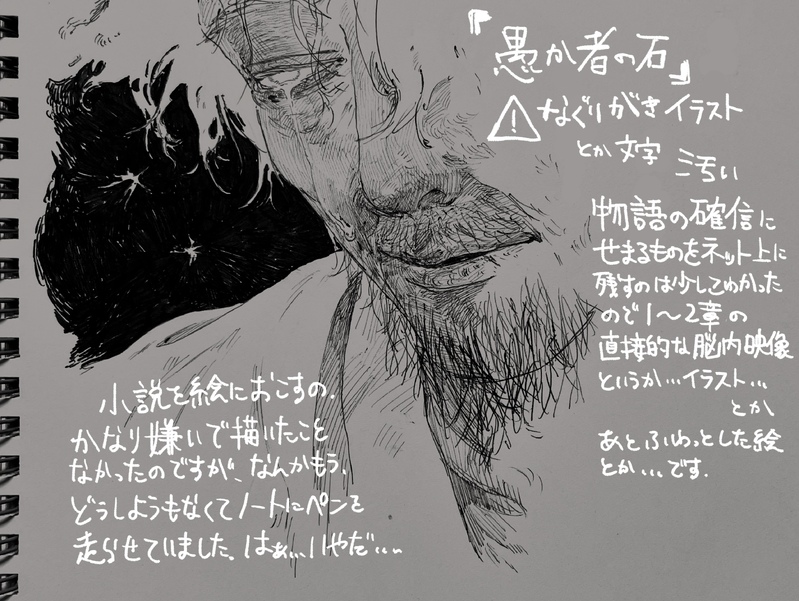 『愚か者の石』
⚠なぐりがきイラスト
とか文字
汚い
物語の確信に
せまるものをネット上に
残すのは少してわかった
ので1〜2章の
直接的な脳内映像
というか…イラスト…
とか
あとふわっとした絵
とか…です.
小説を絵におこすの.
かなり嫌いで描いたこと
なかったのですが、なんかもう.
どうしようもなくてノートにペンを
走らせていました.はぁ…いやだ…